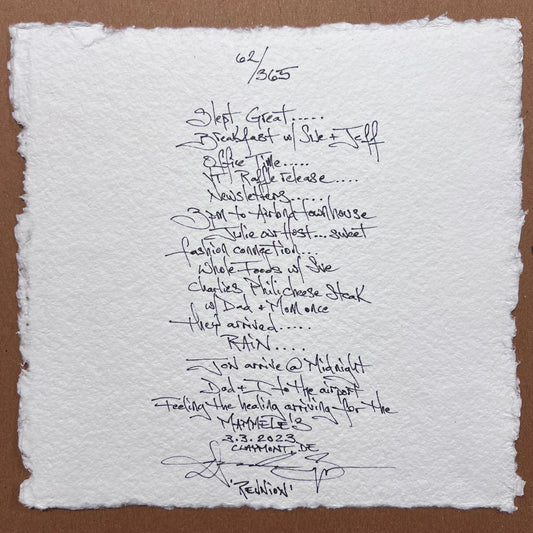 62/365
Slept Great.....
Breakfast w/ Sue + Jeff
Office Time.....
VT Raffle release....
Newsletters.....
3pm to Airbnb townhouse
Julie our Host... sweet
fashion connection...
Whole Foods w/ Sue
Charlies Phili cheese Steak
w/ Dad + Mom once
they arrived.....
RAiN....
Jon arrive @ Midnight
Dad + I to the airport
Feeling the healing arriving for the
MAMMELE'S
3.3.2023
CLAYMONT, DE
'REUNION'